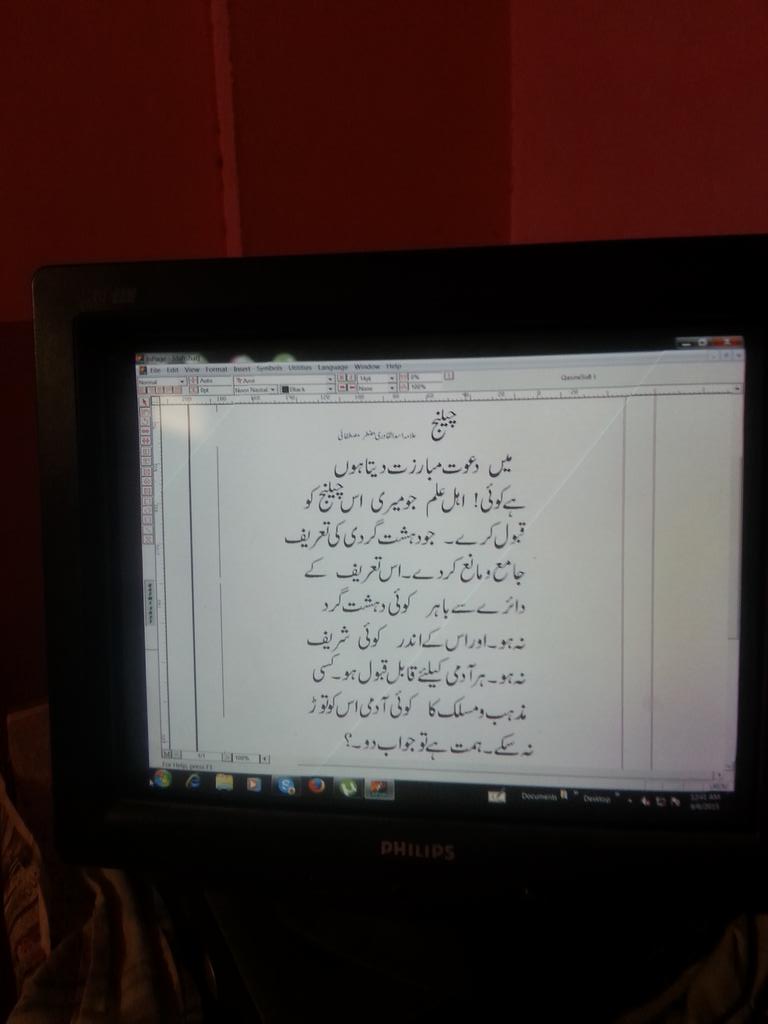 InPage
File Edit View Format Insert Symbols Utilities Language Window Help
Normal Auto Asad 14pt 0%
0pt Noori Nastal Black None 100%
چیلنج
علامہ اسدالقادری مصطفائی
میں دعوت مبارزت دیتا ہوں
ہے کوئی! اہل علم جو میری اس چیلنج کو
قبول کرے۔ جو دہشت گردی کی تعریف
جامع و مانع کر دے۔ اس تعریف کے
دائرے سے باہر کوئی دہشت گرد
نہ ہو۔ اور اس کے اندر کوئی شریف
نہ ہو۔ ہر آدمی کیلئے قابل قبول ہو۔ کسی
مذہب و مسلک کا کوئی آدمی اس کو توڑ
نہ سکے۔ ہمت ہے تو جواب دو۔؟
1/1 100%
For Help, press F1
Documents Desktop 12:41 AM
PHILIPS